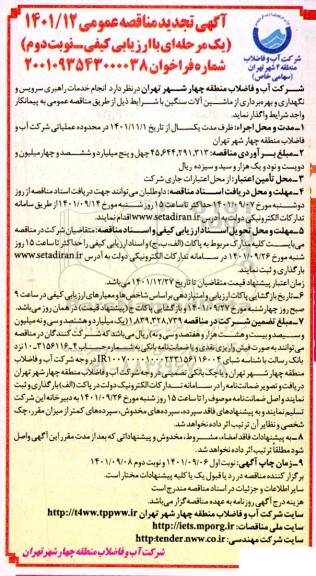 آگهی تجدید مناقصه عمومی ۱۴۰۱/۱۲
(یک مرحله‌ای با ارزیابی کیفی-نوبت دوم)
شماره فراخوان ۲۰۰۱۰۹۳۵۴۳۰۰۰۰۳۸
شرکت آب و فاضلاب
منطقه ۴ شهر تهران
(سهامی خاص)
شرکت آب و فاضلاب منطقه چهار شهر تهران در نظر دارد انجام خدمات راهبری سرویس و
نگهداری و بهره‌برداری از ماشین آلات سنگین با شرایط ذیل از طریق مناقصه عمومی به پیمانکار
واجد شرایط واگذار نماید.
۱-مدت و محل اجراء: ظرف مدت یکسال از تاریخ ۱۴۰۱/۱۱/۱ در محدوده عملیاتی شرکت آب و
فاضلاب منطقه چهار شهر تهران
۲-مبلغ برآوردی مناقصه: ۴۵,۶۴۴,۲۹۱,۳۱۳ چهل و پنج میلیارد و ششصد و چهل و چهار میلیون و
دویست و نود و یک هزار و سیصد و سیزده ریال
۳-محل تأمین اعتبار: از محل اعتبارات جاری شرکت
۴-مهلت و محل دریافت اسناد مناقصه: داوطلبان می‌توانند جهت دریافت اسناد مناقصه از روز
دوشنبه مورخ ۱۴۰۱/۰۹/۰۷ حداکثر تا ساعت ۱۵ روز شنبه مورخ ۱۴۰۱/۰۹/۱۴ از طریق سامانه
تدارکات الکترونیکی دولت به آدرس www.setadiran.ir اقدام نمایند.
۵-مهلت و محل تحویل اسناد ارزیابی کیفی و اسناد مناقصه: متقاضیان شرکت در مناقصه
می‌بایست کلیه مدارک مربوط به پاکات (الف، ب، ج) و اسناد ارزیابی کیفی را حداکثر تا ساعت ۱۵ روز
شنبه مورخ ۱۴۰۱/۰۹/۲۶ در سامانه تدارکات الکترونیکی دولت به آدرس www.setadiran.ir
بارگذاری و ثبت نمایند.
زمان اعتبار پیشنهاد قیمت متقاضیان تا تاریخ ۱۴۰۱/۱۲/۲۷ می‌باشد.
۶-تاریخ بازگشایی پاکات: ارزیابی و امتیازدهی براساس شاخص‌ها و معیارهای ارزیابی کیفی در ساعت ۹
صبح روز چهارشنبه مورخ ۱۴۰۱/۰۹/۲۷ و بازگشایی پاکات ج (پیشنهاد قیمت) در همان روز می‌باشد.
۷-مبلغ تضمین شرکت در مناقصه ۱,۸۳۹,۳۲۸,۷۳۹ (یک میلیارد و هشتصد و سی و نه میلیون
و سیصد و بیست و هشت هزار و هفتصد و سی و نه) ریال می‌باشد که شرکت کنندگان در مناقصه
بانک رسالت با شناسه شبای در وجه شرکت آب و فاضلاب
منطقه چهار شهر تهران و یا چک بانکی تضمینی در وجه شرکت آب و فاضلاب منطقه چهار شهر تهران
دریافت و تصویر ضمانت‌نامه را در سامانه تدارکات الکترونیک دولت در پاکت (الف) بارگذاری و ثبت
نمایند و اصل ضمانت‌نامه موصوف را تا ساعت ۱۵ روز شنبه مورخ ۱۴۰۱/۰۹/۲۶ به دبیرخانه این شرکت
تسلیم نمایند و به پیشنهادهای فاقد سپرده، سپرده‌های مخدوش، سپرده‌های کمتر از میزان مقرر، چک
شخصی و نظایر آن ترتیب اثر داده نخواهد شد.
۸-به پیشنهادات فاقد امضاء، مشروط، مخدوش و پیشنهاداتی که بعد از مدت مقرر این آگهی واصل
شود مطلقاً ترتیب اثر داده نخواهد شد.
۹-زمان چاپ آگهی: نوبت اول ۱۴۰۱/۰۹/۰۶ و نوبت دوم ۱۴۰۱/۰۹/۰۸
برگزار کننده مناقصه در رد یا قبول یک یا کلیه پیشنهادات مختار است.
سایر اطلاعات و جزئیات در اسناد مناقصه مندرج است
هزینه درج آگهی روزنامه به عهده مناقصه‌گزار می‌باشد.
سایت شرکت آب و فاضلاب منطقه چهار شهر تهران http://t4ww.tppww.ir
سایت ملی مناقصات: http://iets.mporg.ir
سایت شرکت مهندسی: http:tender.nww.co.ir
شرکت آب و فاضلاب منطقه چهار شهر تهران